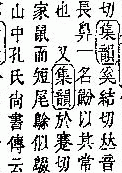 切集韻奚結切𠀤音
長鼻一名鼢以其常
也 又集韻於蹇切
家鼠而短尾鵌似鵽
山中孔氏尚書傳云